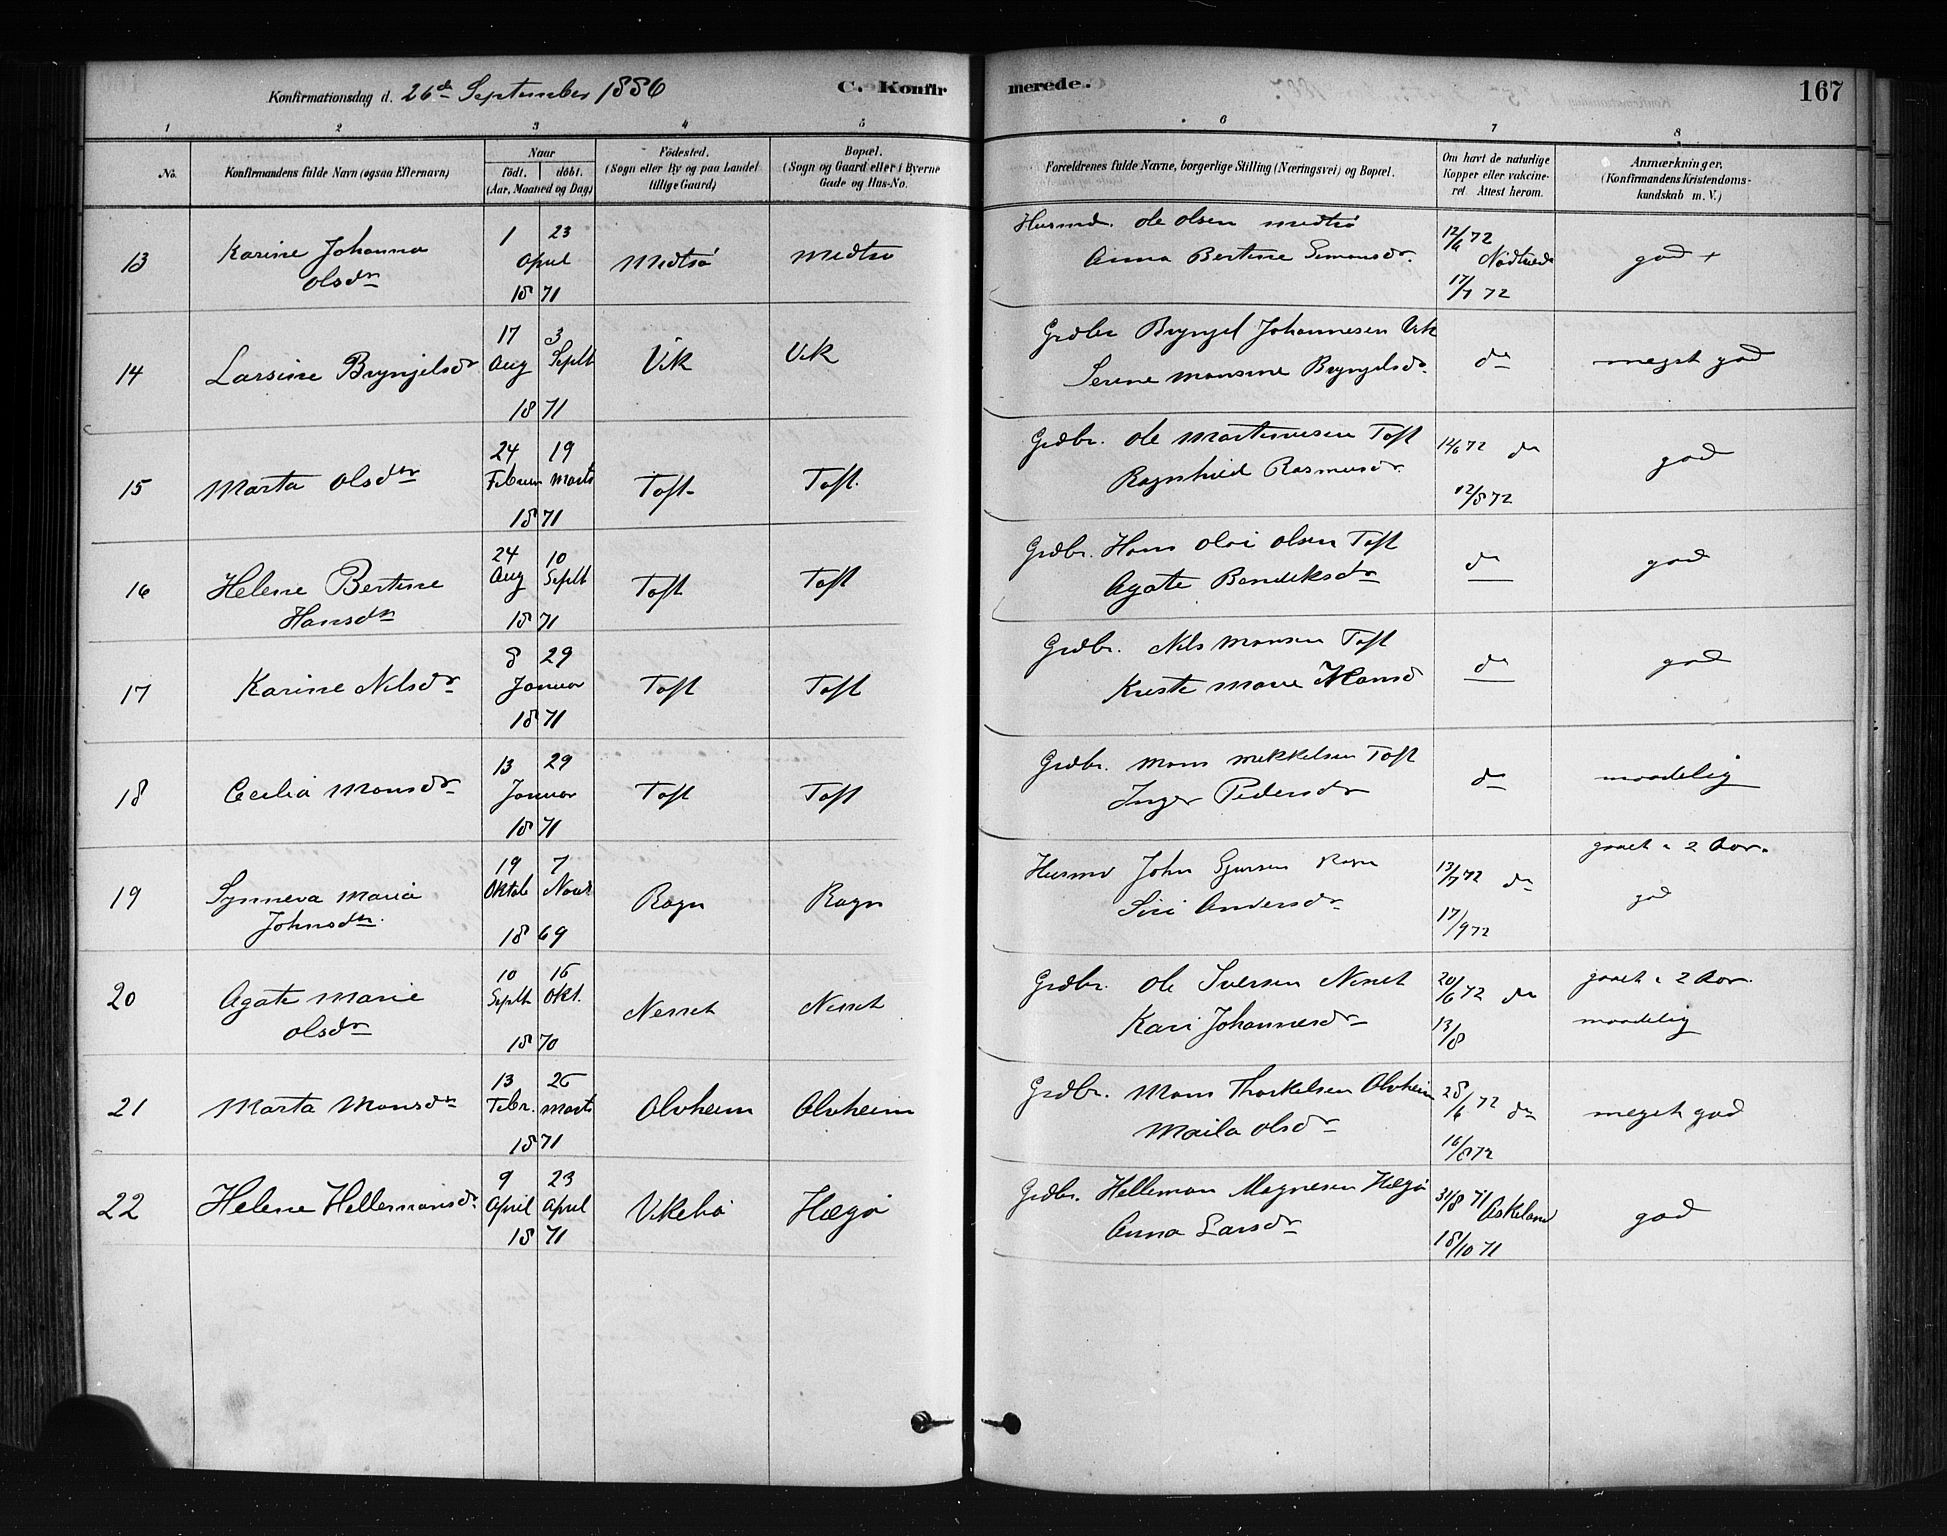 Konfirmationsdag d. 26de September 1886 C. Konfirmerede. 167
1 2 3 4 5 6 7 8
No. Konfirmandens fulde Navn (ogsaa Efternavn) Naar født. døbt. (Aar, Maaned og Dag) Fødested. (Sogn eller By og paa Landet tillige Gaard) Bopæl. (Sogn og Gaard eller i Byerne Gade og Hus-No. Forældrenes fulde Navne, borgerlige Stilling (Næringsvei) og Bopæl. Om havt de naturlige Kopper eller vakcineret. Attest herom. Anmærkninger. (Konfirmandens Kristendomskundskab m. V.)
13 Karine Johanna Olsdr 1 23 April 1871 Midtsø Midtsø Husmd. Ole Olsen Midtsø 12/6 72
Anna Bertine Simonsdr. 17/7 72 god +
14 Larsine Bryngelsdr 17 Aug 3 Septb 1871 Vik Vik Grdbr Bryngel Johannesen Vik
Serine Monsine Bryngelsdr. do meget god
15 Marta Olsdtr 24 Februar 19 Marts 1871 Toft Toft. Grdbr. Ole Martinusen Toft 14/6 72 do
Ragnhild Rasmusdr. 12/8 72 god
16 Helene Bertine Hansdtr 24 Aug 10 Septb 1871 Toft Toft Grdbr. Hans Olai Olsen Toft
Agate Bendiksdr do god
17 Karine Nilsdr 8 29 Januar 1871 Toft Toft Grdbr. Nils Monsen Toft
Kristi Marie Hansd do god
18 Cecilia Monsdr 13 29 Januar 1871 Toft Toft Grdbr. Mons Mikkelsen Toft
Inger Pedersdr do maadelig
19 Synneva Maria Johnsdtr. 19 Oktob 7 Novb 1869 Rogn Rogn Husmd John Gjersen Rogn 13/7 72 do gaaet i 2 Aar.
Siri Andersdr 17/9 72 god
20 Agate Marie Olsdr 10 Septb 16 Okt. 1870 Nesset Nesset Grdbr. Ole Iversen Nesset 20/6 72 do gaaet i 2 Aar.
Kari Johannesdr 13/8 maadelig
21 Marta Monsdr 13 Febr. 26 Marts 1871 Alvheim Alvheim Grdbr. Mons Thorkelsen Alvheim 28/6 72 do
Maila Olsdr 16/8 72 meget god
22 Helene Hellemansdr 9 April 23 April 1871 Vikebø Hægø Grdbr. Helleman Magnesen Hægø 31/8 71 Askeland
Anna Larsdr 18/10 71 god